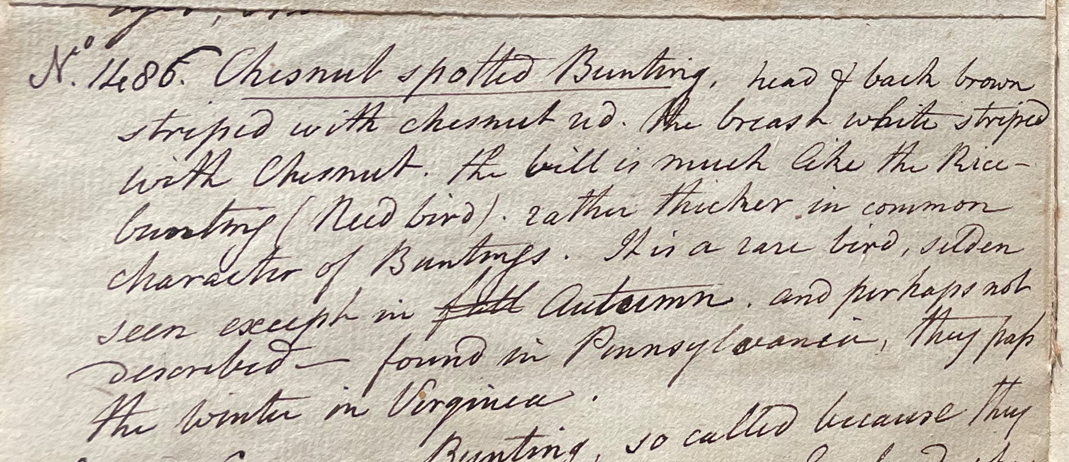 No. 1486. Chesnut spotted Bunting, head & back brown
striped with chesnut red. the breast white striped
with Chesnut. the bill is much like the Rice-
bunting (Reed bird). rather thicker in common
character of Buntings. It is a rare bird, selden
seen except in fall Autumn. and perhaps not
described— found in Pennsylvania, they pass
the winter in Virginia.
Bunting, so called because they